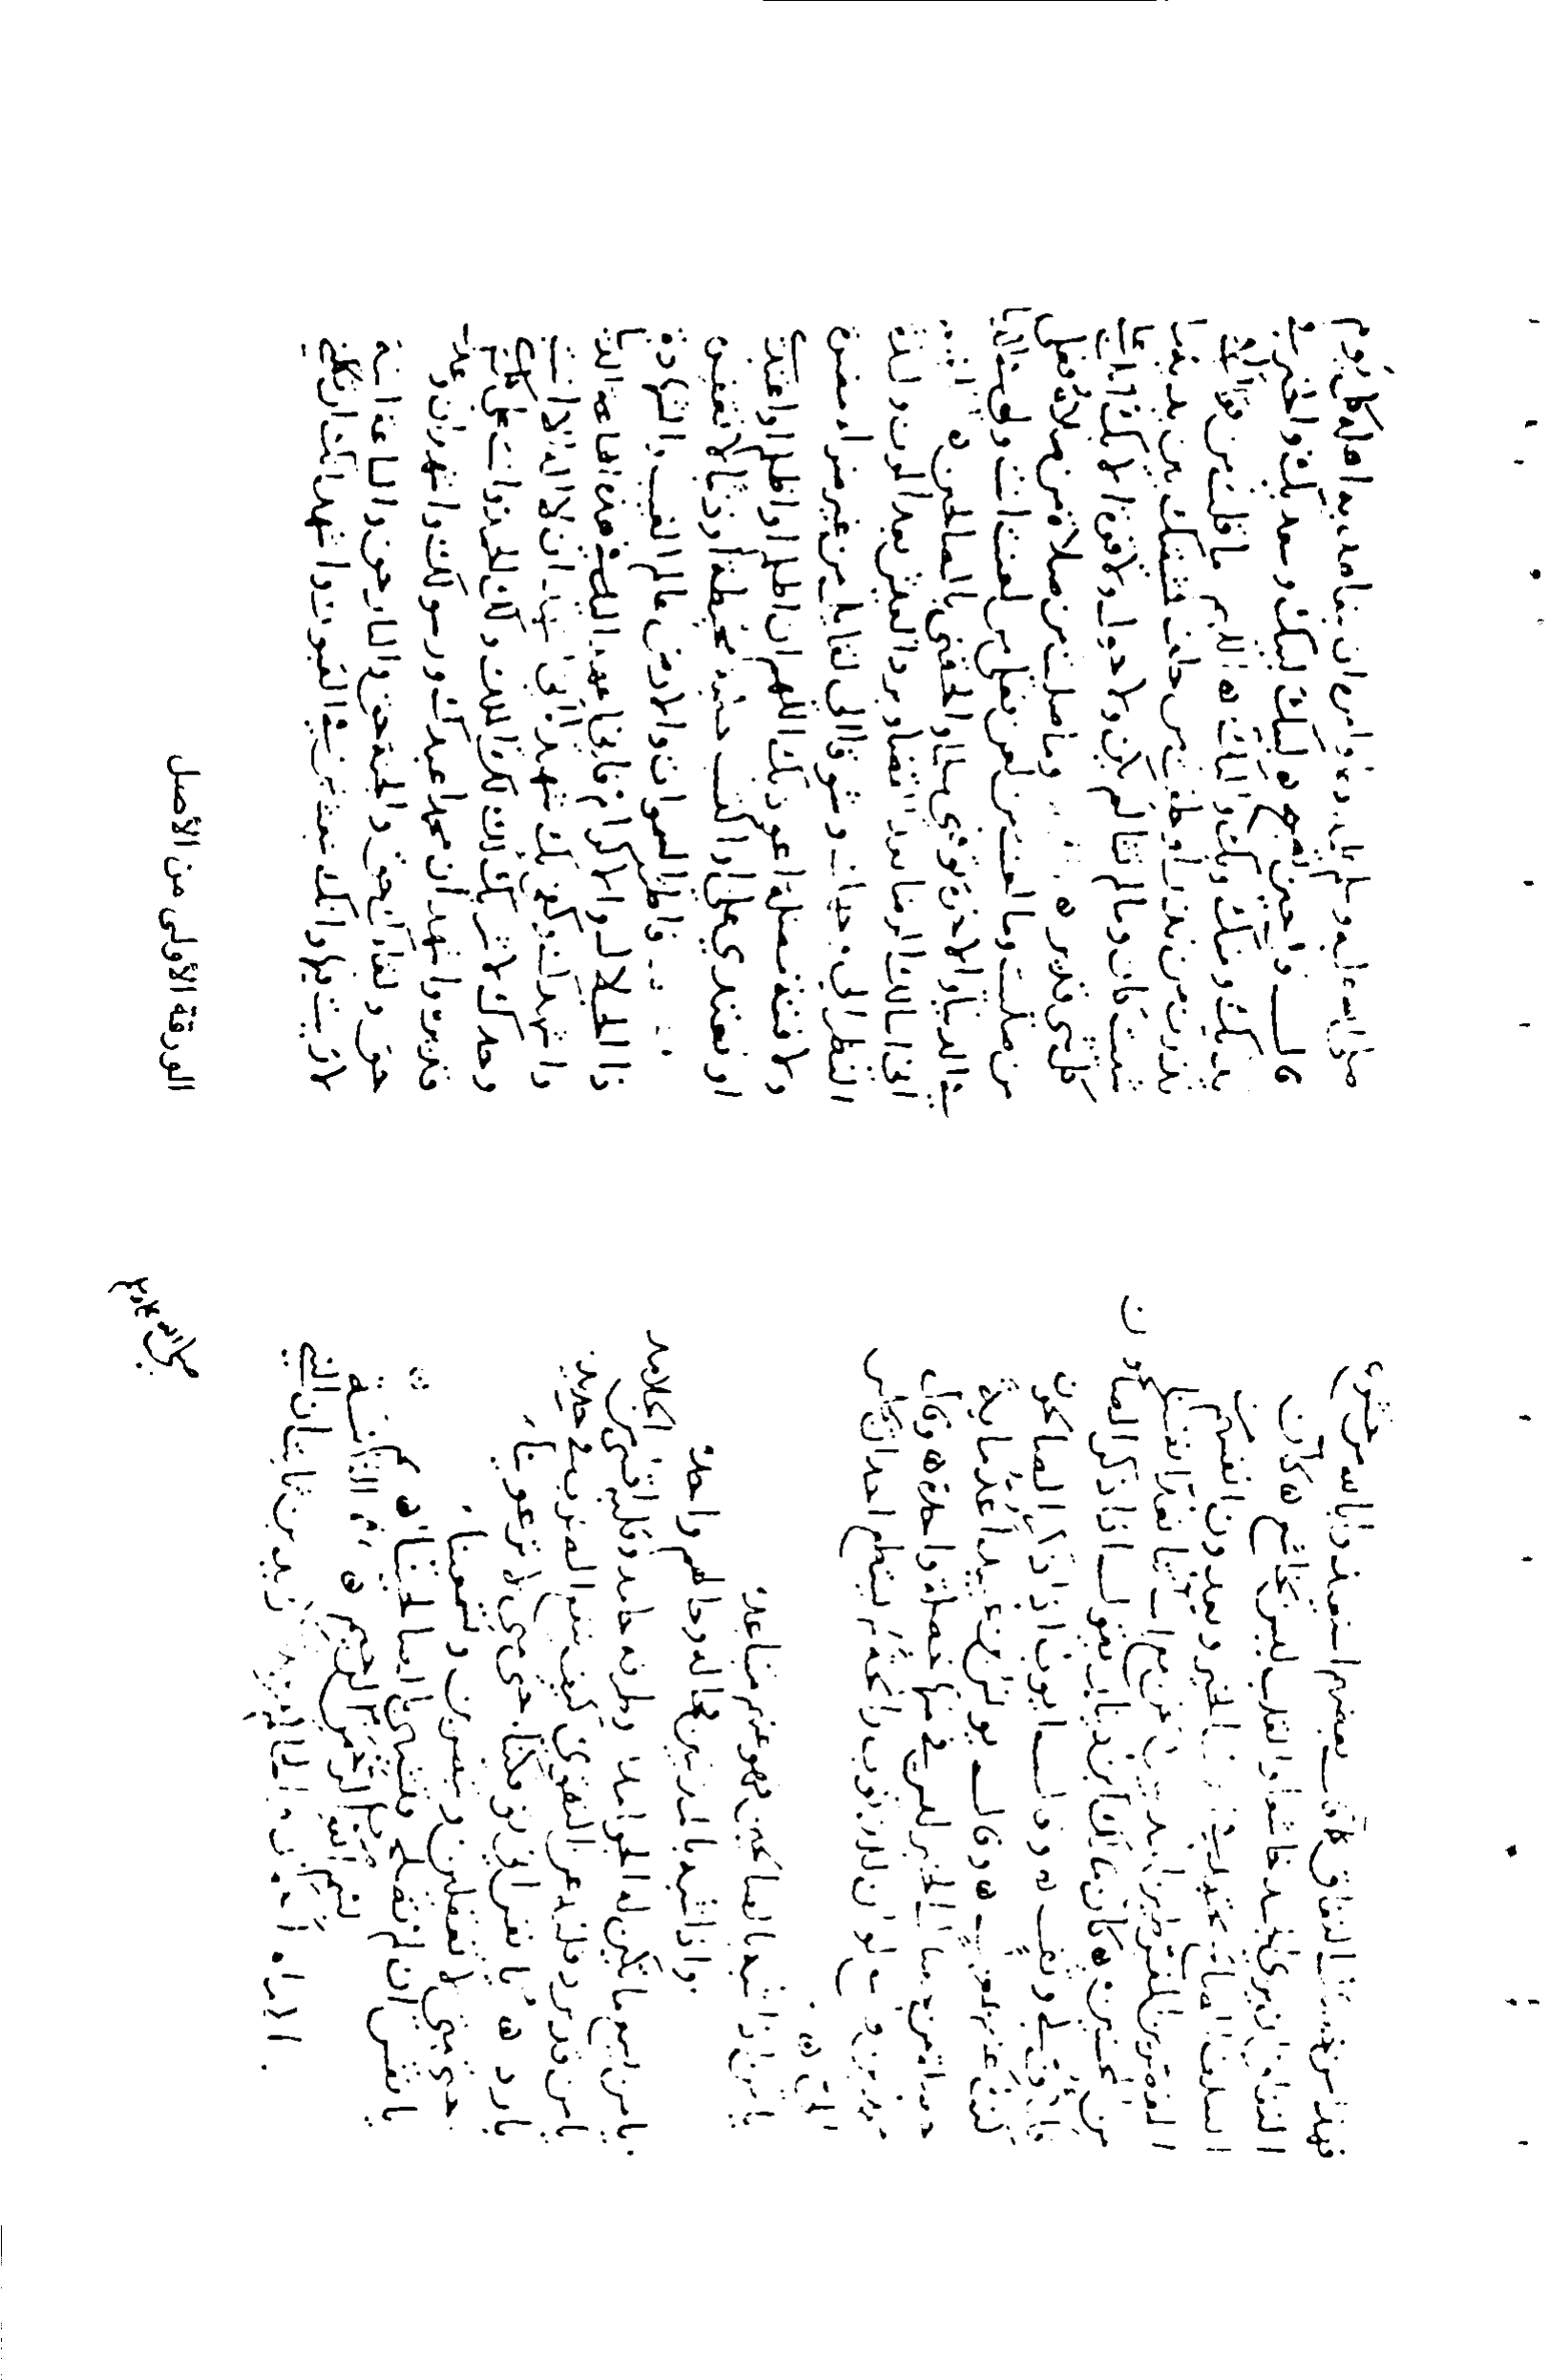 فهذا من النفاق كما قال بعضهم استعيذوا بالله من خشوع
النفاق ان يرى الجسد خاشعا والقلب ليس بخاشع ه كان
السلف الصالح يجتهدون الخير ويعدون انفسهم من
المقصرين المفرطين المذنبين ونحن مع اساءتنا نعد انفسنا
من المحسنين ه كان مالك ابن دينار يقول اذا ذكر الصالحون
فأف لي وتف ه وقال ايوب اذا ذكر الصالحون
كنت عنهم بمعزل ه وقال يونس بن عبيد أعد مائة
خصلة من خصال الخير ليس في منها خصلة واحدة ه وقال
محمد بن واسع لو ان للذنوب رائحة لم يستطع احد ان يجلس
الي ه
يا من اذا شبه بالصالحين فهو عنهم متباعد
واذا شبه بالمذنبين فحاله وحالهم واحد
يا من يسمع ما تلين له الجوامد وطرفه جامد وقلبه اقسى من الجلامد
يا من برد قلبه عن التقوى كيف ينفع الضرب في حديد
بارد ه يا نفس انى توفكينا حتى متى لا ترعوينا
حتى متى لا تعقلين وتبصرين وتسمعينا
يا نفس ان لم تصلحي فتشبهي بالصالحينا ه
بسم الله الرحمن الرحيم ه
الامام احمد زيد بن ثابت ان النبي
صلى الله عليه وسلم علمه دعاء وامره ان يتعاهد به اهله كل يوم
قال قل حين تصبح لبيك اللهم لبيك لبيك وسعديك والخير في
يديك ومنك وبك واليك ه اللهم ما قلت من قول او
نذرت من نذر او حلفت من حلف فمشيئتك بين يديه ما
شئت كان وما لم تشأ لم يكن ولا حول ولا قوة الا بك انك على
كل شيء قدير ه وما صليت من صلاة فعلى
من صليت وما لعنت من لعن فعلى من لعنت انت وليي في الدنيا
في الدنيا والاخرة توفني مسلما والحقني بالصالحين ه
اني اسالك الرضا بعد القضاء وبرد العيش بعد الموت ولذة
النظر الى وجهك وشوقا الى لقائك من غير ضراء مضرة
ولا فتنة مضلة اعوذ بك اللهم ان اظلم او اظلم او اعتدي
او يعتدى علي او اكتسب خطيئة محبطة او ذنبا لا تغفره
فاطر السموات والارض عالم الغيب والشهادة
ذا الجلال والاكرام فاني اعهد اليك في هذه الحياة الدنيا
واشهدك وكفى بك شهيدا اني اشهد ان لا اله الا انت
وحدك لا شريك لك لك الملك ولك الحمد وانت على كل شيء
قدير واشهد ان محمدا عبدك ورسولك واشهد ان وعدك
حق ولقاءك حق والجنة حق والنار حق والساعة اتية
لا ريب فيها وانك تبعث من في القبور واشهد انك ان تكلني
الورقة الأولى من الأصل